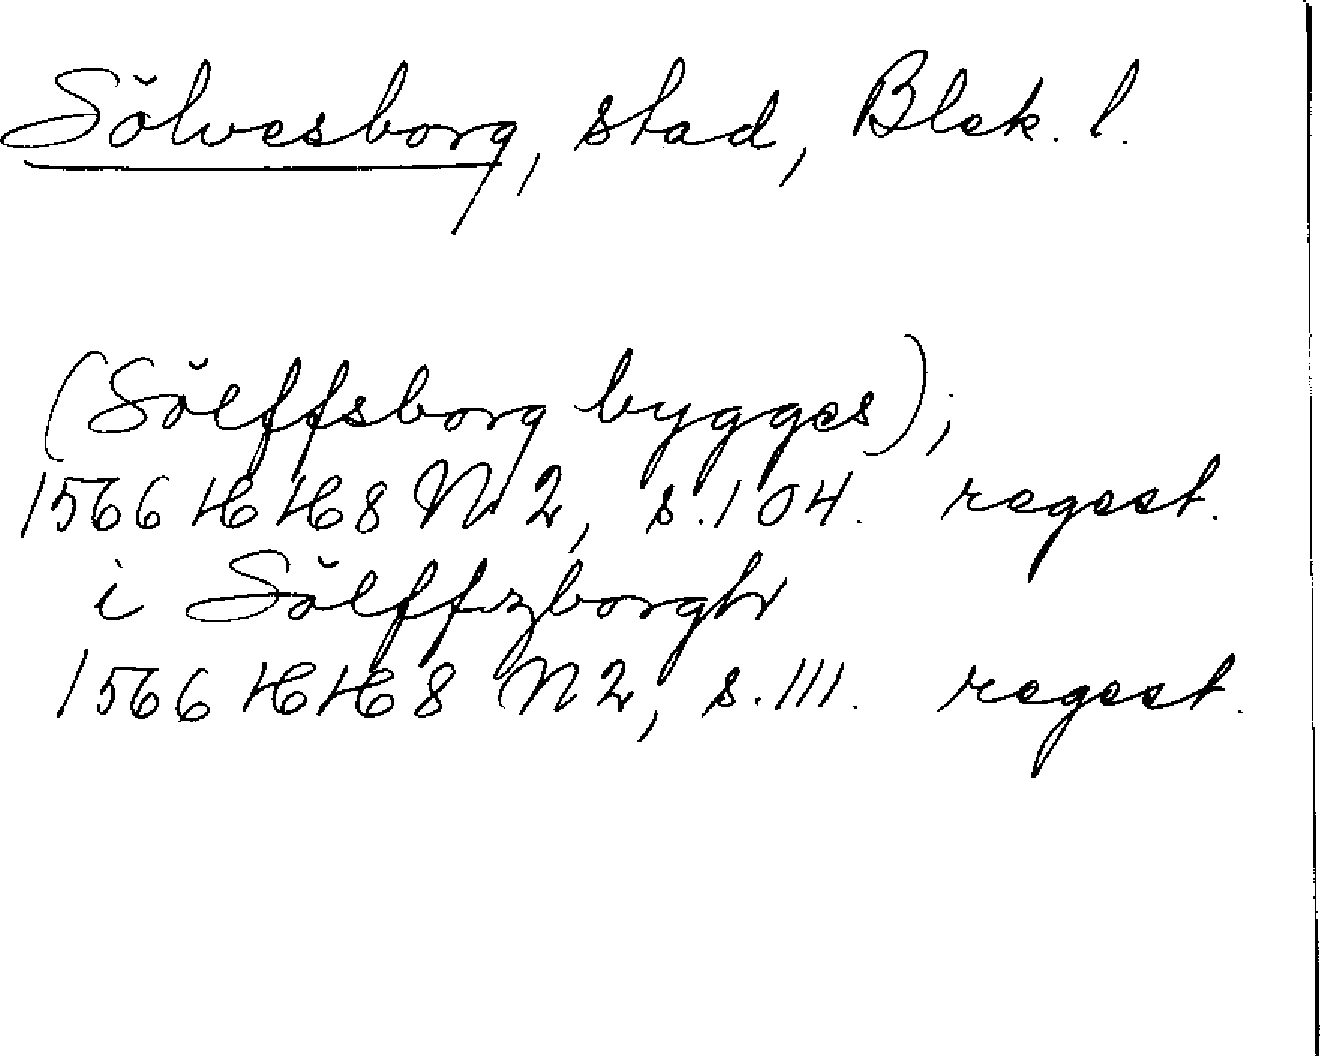 Sölvesborg, stad, Blek. l.
(Sölffsborg bygges);
1566 HH 8 N 2, s. 104. regest.
i Sölffzborgh
1566 HH 8 N 2, s. 111. regest.